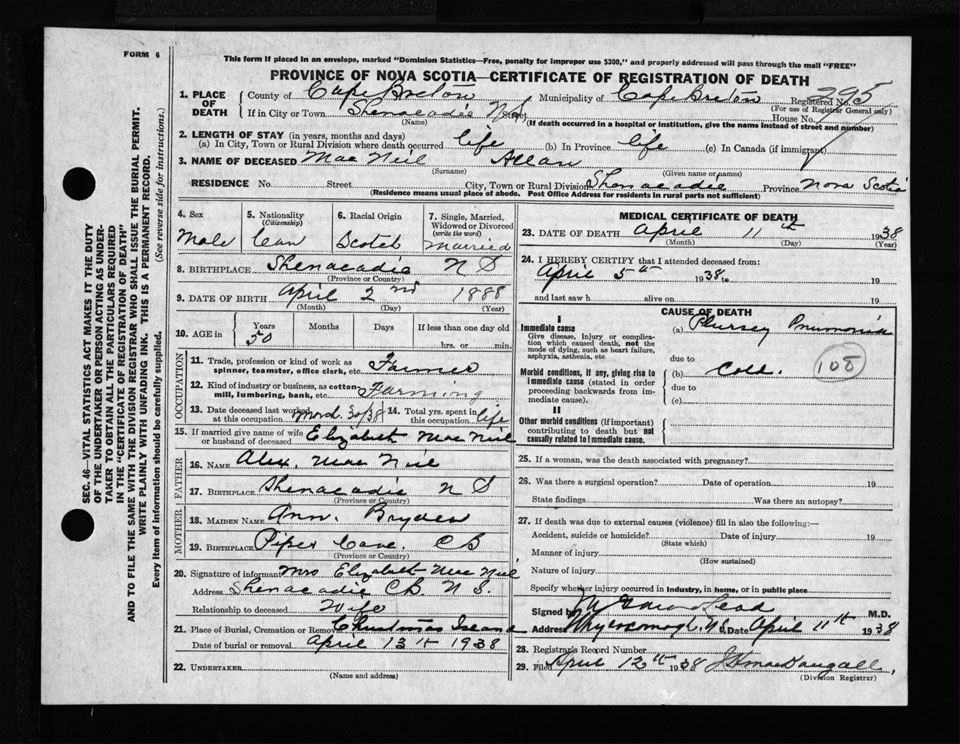 FORM 6
This form if placed in an envelope, marked "Dominion Statistics—Free, penalty for improper use $300," and properly addressed will pass through the mail "FREE"
PROVINCE OF NOVA SCOTIA—CERTIFICATE OF REGISTRATION OF DEATH
1. PLACE OF DEATH County of Cape Breton Municipality of Cape Breton Registered No. 295
(For use of Registrar General only)
If in City or Town Shenacadie N S Street House No.
(Name) (If death occurred in a hospital or institution, give the name instead of street and number)
2. LENGTH OF STAY (in years, months and days)
(a) In City, Town or Rural Division where death occurred life (b) In Province life (c) In Canada (if immigrant)
3. NAME OF DECEASED Mac Neil Allan
(Surname) (Given name or names)
RESIDENCE No. Street City, Town or Rural Division Shenacadie Province Nova Scotia
(Residence means usual place of abode. Post Office Address for residents in rural parts not sufficient)
4. Sex Male
5. Nationality (Citizenship) Can
6. Racial Origin Scotch
7. Single, Married, Widowed or Divorced (write the word) Married
8. BIRTHPLACE Shenacadie N S
(Province or Country)
9. DATE OF BIRTH April 2nd 1888
(Month) (Day) (Year)
10. AGE in Years 50 Months Days If less than one day old hrs. or min.
OCCUPATION
11. Trade, profession or kind of work as spinner, teamster, office clerk, etc. Farmer
12. Kind of industry or business, as cotton mill, lumbering, bank, etc. Farming
13. Date deceased last worked at this occupation 30/38
14. Total yrs. spent in this occupation life
15. If married give name of wife or husband of deceased Elizabeth Mac Neil
FATHER
16. NAME Alex. Mac Neil
17. BIRTHPLACE Shenacadie N S
(Province or Country)
MOTHER
18. MAIDEN NAME Ann. Bryden
19. BIRTHPLACE Piper Cove. C B
(Province or Country)
20. Signature of informant Mrs Elizabeth Mac Neil
Address Shenacadie C B. N S.
Relationship to deceased Wife
21. Place of Burial, Cremation or Removal Christmas Island
Date of burial or removal April 13th 1938
22. UNDERTAKER
(Name and address)
MEDICAL CERTIFICATE OF DEATH
23. DATE OF DEATH April 11th 1938
(Month) (Day) (Year)
24. I HEREBY CERTIFY that I attended deceased from:
April 5th 1938 19
and last saw h alive on 19
CAUSE OF DEATH
I
Immediate cause (a) Plursey Pnumonia
Give disease, injury or complication which caused death, not the mode of dying, such as heart failure, asphyxia, asthenia, etc
due to
Morbid conditions, if any, giving rise to immediate cause (stated in order proceeding backwards from immediate cause). (b) Cold. 108
due to
(c)
II
Other morbid conditions (if important) contributing to death but not causally related to immediate cause.
25. If a woman, was the death associated with pregnancy?
26. Was there a surgical operation? Date of operation 19
State findings Was there an autopsy?
27. If death was due to external causes (violence) fill in also the following:—
Accident, suicide or homicide? Date of injury 19
(State which)
Manner of injury
(How sustained)
Nature of injury
Specify whether injury occurred in industry, in home, or in public place
Signed by M.D.
Address Whycocomagh, N.S. Date April 11th 1938
28. Registrar's Record Number
29. Filed April 12th 1938 MacDougall,
(Division Registrar)
SEC. 46—VITAL STATISTICS ACT MAKES IT THE DUTY
OF THE UNDERTAKER OR PERSON ACTING AS UNDERTAKER
TO OBTAIN ALL THE PARTICULARS REQUIRED
IN THE "CERTIFICATE OF REGISTRATION OF DEATH"
AND TO FILE THE SAME WITH THE DIVISION REGISTRAR WHO SHALL ISSUE THE BURIAL PERMIT.
WRITE PLAINLY WITH UNFADING INK. THIS IS A PERMANENT RECORD.
Every item of information should be carefully supplied. (See reverse side for instructions.)